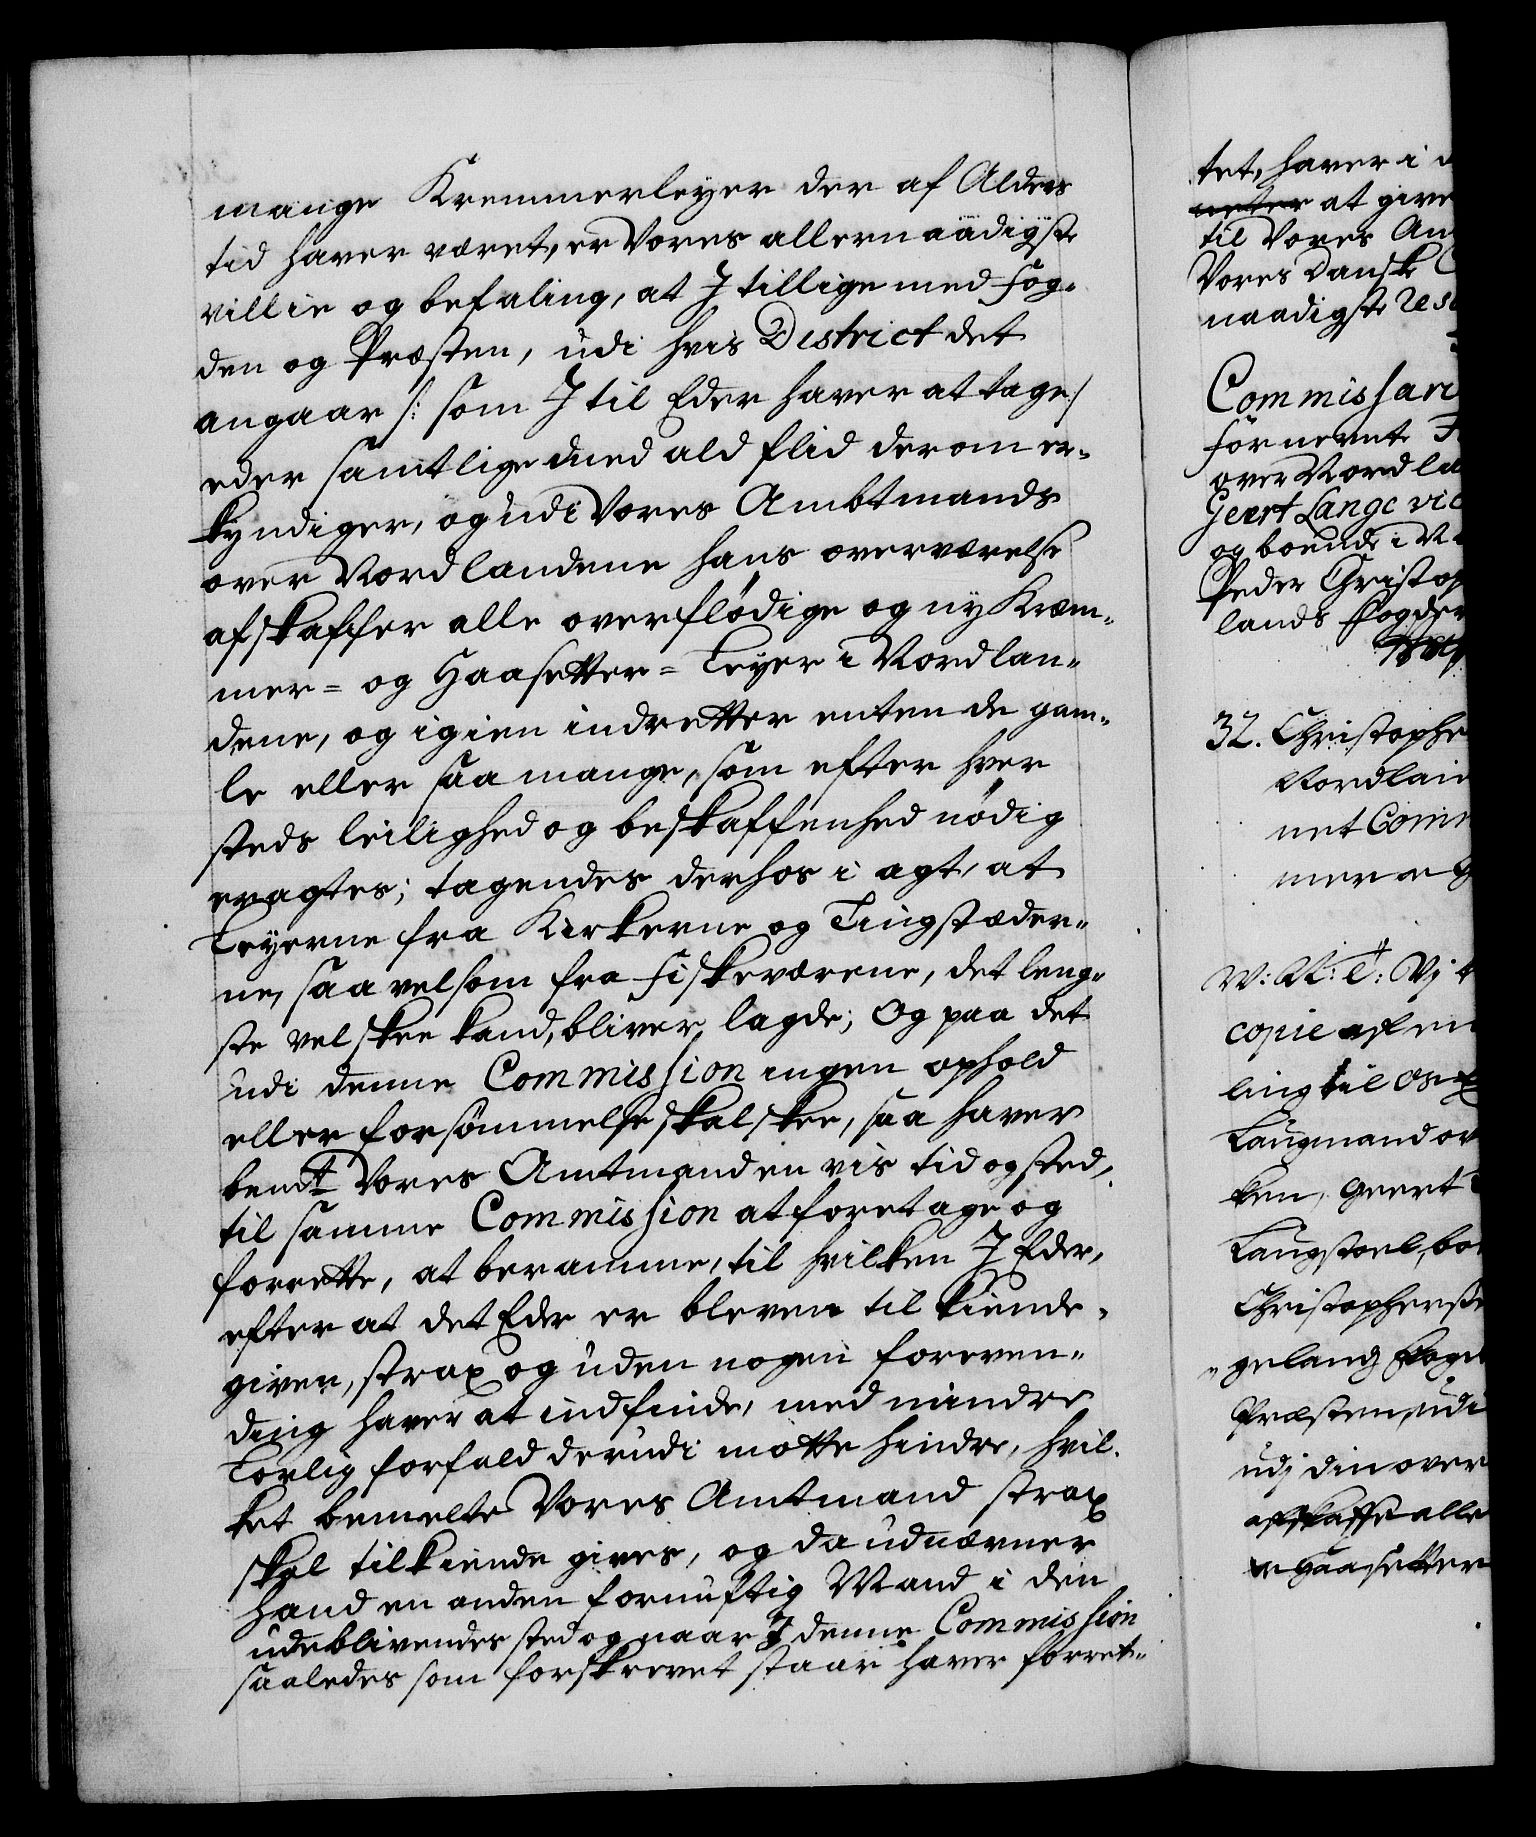 mange Kremmerleyer der af Alders
tid haver været, er Vores allernaadigste
villie og befaling, at I tillige med Fog-
den og Præsten, udi hvis District det
angaar /: som I til Eder haver at tage /
eder samtlige med ald flid derom er-
kyndiger, og udi Vores Ambtmands
over Nordlandene hans overværelse
afskaffer alle overflødige og ny Kræm-
mer= og Haasetter= Leyer i Nordlan-
dene, og igien indretter enten de gam-
le eller saa mange, som efter hver
steds leilighed og beskaffenhed nødig
eragtes; tagendes derhos i agt, at
Leyerne fra Kirkerne og Tingstæder-
ne, saavelsom fra Fiskeværene, det leng-
ste vel skee kand, bliver lagde; Og paa det
udi denne Commission ingen ophold
eller forsømmelse skal skee, saa haver
bemt Vores Amtmand en vis tid og sted,
til samme Commission at foretage og
forrette, at beramme, til hvilken I Eder,
efter at det Eder er bleven til kiende-
given, strax og uden nogen foreven-
ding haver at indfinde, med mindre
Lovlig forfald derudi motte hindre, hvil-
ket bemelte Vores Amtmand strax
skal tilkiende gives, og da udnævner
hand en anden fornuftig Mand i den
udeblivendes sted og naar I denne Commission
saaledes som forskrevet staar haver forret-
tet, haver i
at give
til Vores Am
Vores Danske
naadigste Res
Commissari
Fornevnte
over Nordla
Geert Lange vic
og boende i
Peder Christop
lands Fogder
32. Christophe
Nordlan
net Comm
mer
W: A: T: Vj
copie af en
ling til os
Laugmand ov
ken, Geert
Laugstoel, bo
Christophersen
gelands Foged
Præsten, udi
udj din over
afskaffe alle
Haasetter